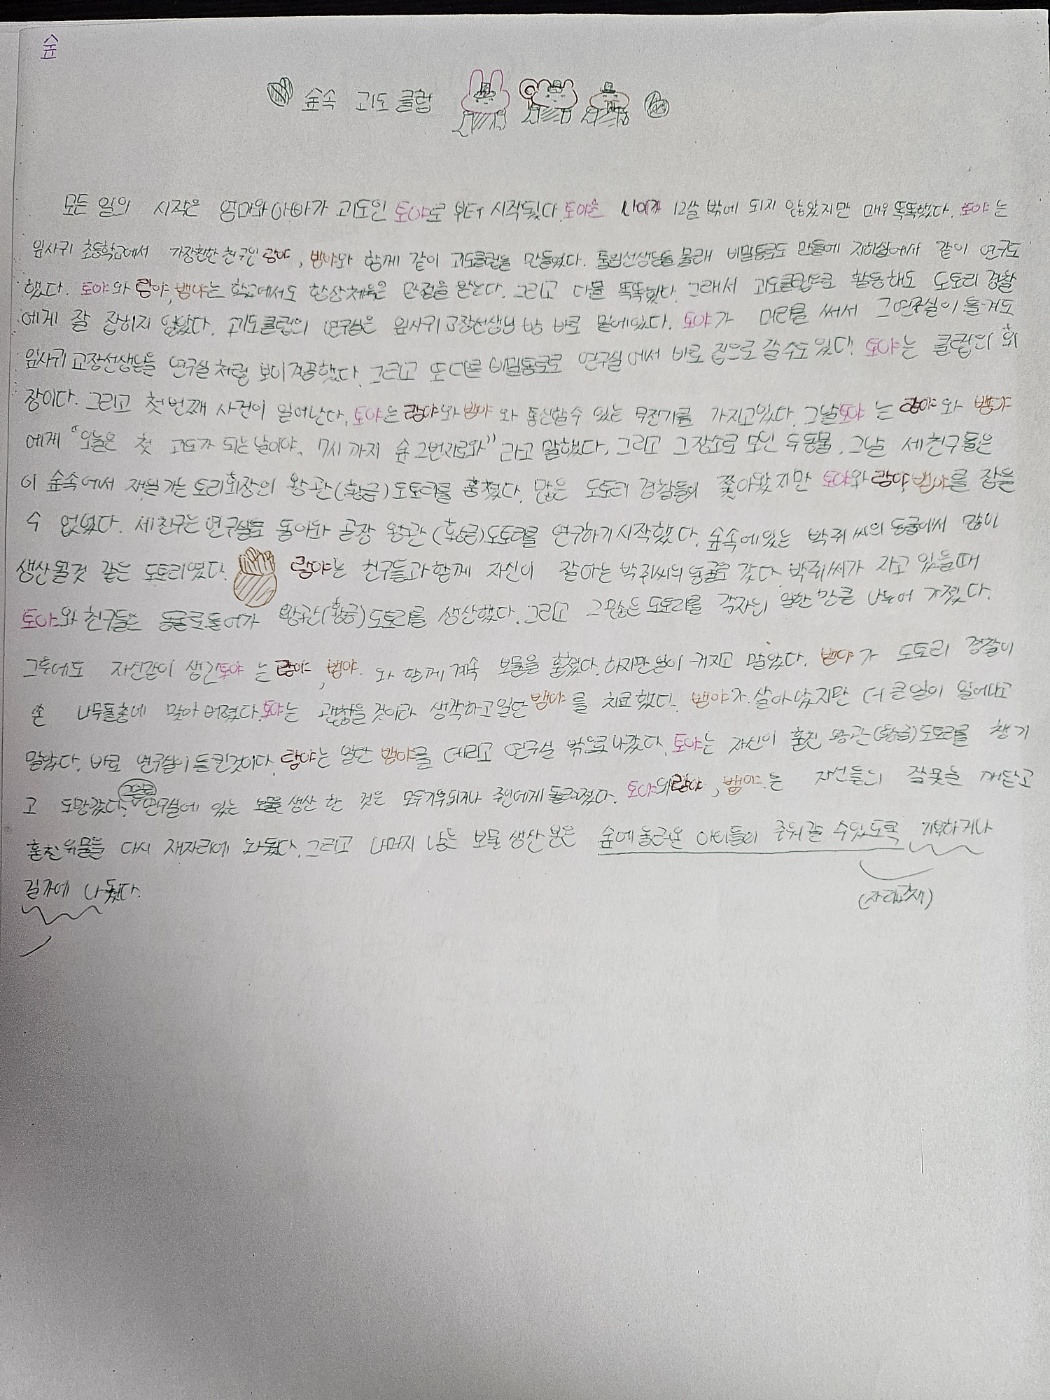 숲
숲속 괴도 클럽
모든 일의 시작은 엄마와 아빠가 괴도인 토야로 부터 시작됬다. 토야는 나이가 12살 밖에 되지 않았지만 매우 똑똑했다. 토야는
잎사귀 초등학교에서 가장친한 친구인 람야, 뱀야와 함께 같이 괴도클럽을 만들었다. 선생님들 몰래 비밀통로도 만들에 지하실에서 같이 연구도
했다. 토야와 람야, 뱀야는 학교에서도 항상 체육은 만점을 받는다. 그리고 다들 똑똑했다. 그래서 괴도클럽으로 활동해도 도토리 경찰
에게 잘 잡히지 않았다. 괴도클럽의 연구실은 잎사귀 교장선생님 방 바로 밑에있다. 토야가 머리를 써서 그연구실이 들겨도
잎사귀 교장선생님들 연구실 처럼 보이게끔했다. 그리고 또 다른 비밀통로로 연구실에서 바로 집으로 갈수도 있다. 토야는 클럽의 회
장이다. 그리고 첫번째 사건이 일어난다. 토야는 람야와 뱀야와 통신할수 있는 무전기를 가지고있다. 그날 토야는 람야와 뱀야
에게 "오늘은 첫 괴도가 되는 날이야. 7시 까지 숲 2번지로와" 라고 말했다. 그리고 그장소로 모인 두동물. 그날 세친구들은
이 숲속에서 제일 가는 토리회장의 왕관(황금)도토리를 훔쳤다. 많은 도토리 경찰들이 쫓아왔지만 토야와 람야 뱀야를 잡을
수 없었다. 세친구는 연구실로 돌아와 곧장 왕관(황금)도토리를 연구하기 시작했다. 숲속에있는 박쥐 씨의 동굴에서 많이
생산될것 같은 도토리였다. 람야는 친구들과 함께 자신이 잘아는 박쥐씨의 동굴로 갔다. 박쥐씨가 자고 있을때
토야와 친구들은 동굴로들어가 왕관(황금)도토리를 생산했다. 그리고 그많은 도토리를 각자의 일한 만큼 나누어 가졌다.
그후에도 자신감이 생긴 토야는 람야, 뱀야와 함께 계속 보물을 훔쳤다. 하지만 일이 커지고 말았다. 뱀야가 도토리 경찰이
쏜 나무돌총에 맞아 버렸다. 토야는 괜찮을것이라 생각하고 일단 뱀야를 치료했다. 뱀야가 살아났지만 더 큰일이 일어나고
말았다. 바로 연구실이 들킨것이다. 람야는 일단 뱀야를 데리고 연구실 밖으로 나갔다. 토야는 자신이 훔친 왕관(황금)도토리를 챙기
고 도망갔다. 연구실에 있는 보물 생산 한 것은 모두 주인에게 돌려졌다. 토야와 람야, 뱀야는 자신들의 잘못을 깨닫고
훔친 유물들 다시 제자리에 놔뒀다. 그리고 나머지 남는 보물 생산분은 숲에 놀러온 아이들이 주워갈 수있도록 기부하거나
길가에 나뒀다.